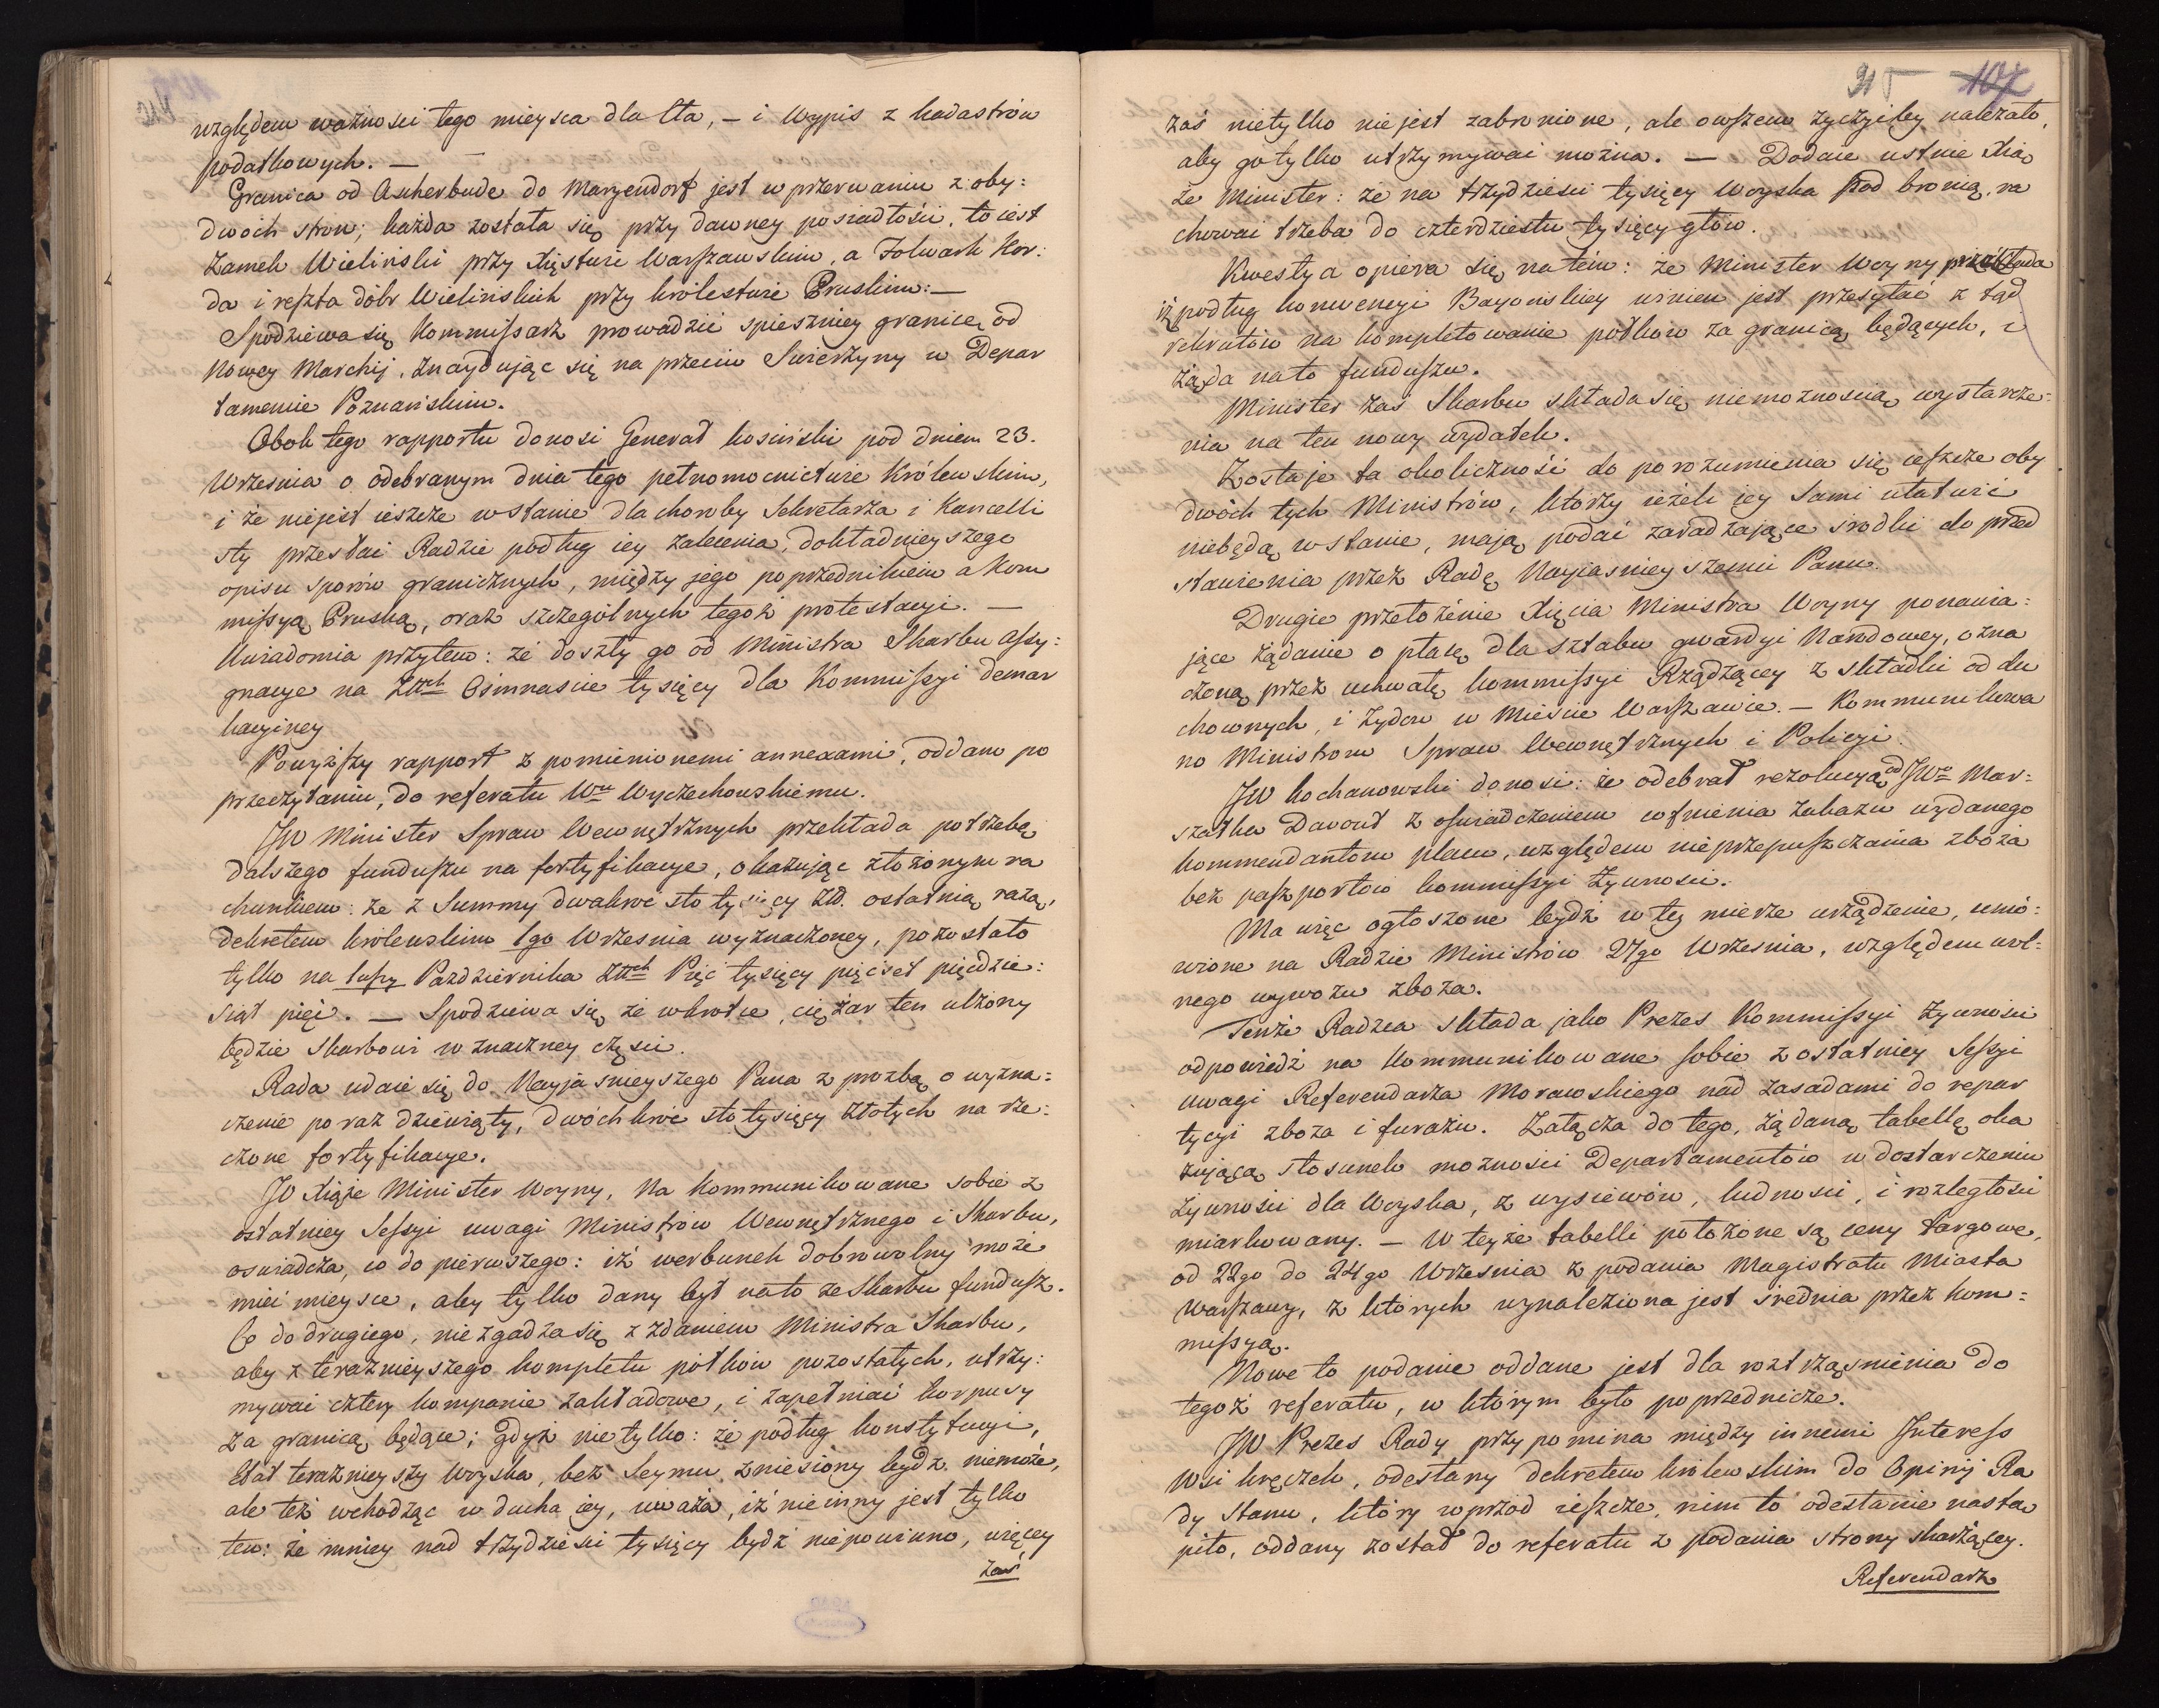 względem ważności tego mieysca dla Cła, – i Wypis z kadastrów
podatkowych. —
Granica od Ascherbude do Maryendorf jest w przerwaniu z oby:
dwóch stron; każda została się przy dawney posiadłości, to iest
Zamek Wieliński przy Xięstwie Warszawskim, a Folwark Kor:
da i reszta dóbr Wielińskich przy królestwie Pruskim: —
Spodziewa się Kommissarz prowadzić spieszniey granicę od
Nowey Marchij, znayduiąc się na przeciw Swierzyny w Depar
tamencie Poznańskim.
Obok tego rapportu donosi Generał Kosiński pod dniem 23.
Września o odebranym dnia tego pełnomocnictwie Królewskim,
i że niejest ieszcze w stanie dla choroby Sekretarza i Kancelli
sty przesłać Radzie podług iey zalecenia, dokładnieyszego
opisu sporów granicznych, między jego poprzednikiem a Kom
missyą Pruską, oraz szczególnych tegoż protestacyi. —
Uwiadomia przytem: że doszły go od Ministra Skarbu Assy:
gnacye na Złtch Ośmnaście tysięcy dla Kommissyi demar
kacyiney
Powyższy rapport z pomienionemi annexami, oddano po
przeczytaniu, do referatu Wu Wyczechowskiemu.
JW Minister Spraw Wewnętrznych przekłada potrzebę
dalszego funduszu na fortyfikacye, okazując złożonym ra
chunkiem: że z Summy dwakroć sto tysięcy Złł. ostatnią razą,
dekretem królewskim 1go Września wyznaczoney, pozostało
tylko na 1szy Października Złtch Pięć tysięcy pięćset pięćdzie:
siąt pięć. — Spodziewa się że wkrótce, ciężar ten ulżony
będzie Skarbowi w znaczney części.
Rada udaie się do Nayjaśnieyszego Pana z prozbą o wyzna:
czenie po raz dziewiąty, dwóchkroć sto tysięcy złotych na rze:
czone fortyfikacye.
JO Xiąże Minister Woyny, Na kommunikowane sobie z
ostatniey Sessyi uwagi Ministrów Wewnętrznego i Skarbu,
oświadcza, co do pierwszego: iż werbunek dobrowolny może
mieć mieysce, aby tylko dany był nato ze Skarbu fundusz.
Co do drugiego, nie zgadza się z zdaniem Ministra Skarbu,
aby z teraznieyszego kompletu półków pozostałych, utrzy:
mywać cztery kompanie zakładowe, i zapełniać korpusy
za granicą będące; gdyż nietylko: że podług konstytucyi,
Etat teraznieyszy Woyska, bez Seymu zniesiony bydz niemoże,
ale też wchodząc w ducha iey, uważa, iż nieinny jest tylko
ten: że mniey nad trzydzieści tysięcy bydź niepowinno, więcey
zaś
215 107
zaś nietylko niejest zabronione, ale owszem życzyćby należało,
aby gotylko utrzymywać można. — Dodaie ustnie Xią
że Minister: że na trzydzieści tysięcy Woyska pod bronią, ra
chować trzeba do czterdziestu tysięcy głów.
Kwestya opiera się natém: że Minister Woyny przekłada
iż podług konwencyi Bayońskiey winien jest przesyłać z tąd
rekrutów na kompletowanie półków za granicą będących, i
żąda nato funduszu.
Minister zaś Skarbu składa się niemożnością wystarcze:
nia na ten nowy wydatek.
Zostaje ta okoliczność do porozumienia się ieszcze oby
dwóch tych Ministrów, którzy ieżeli iey sami ułatwić
niebędą wstanie, mają podać zaradzające środki do przed
stawienia przez Radę Nayiaśnieyszemu Panu.
Drugie przełożenie Xięcia Ministra Woyny ponawia:
jące żądanie o płacę dla sztabu gwardyi Narodowey, ozna
czoną przez uchwałę kommissyi Rządzącey z składki od du
chownych, i żydow w Mieście Warszawie. — Kommunikowa
no Ministrom Spraw Wewnętrznych i Policyi.
JW Kochanowski donosi: że odebrał rezolucyą od JWo Mar:
szałka Davout z oświadczeniem cofnienia zakazu wydanego
kommendantom placu, względem nieprzepuszczania zboża
bez paszportów kommissyi żywności.
Ma więc ogłoszone bydź w tey mierze urządzenie, umó:
wione na Radzie Ministrów 27go Września, względem wol:
nego wywozu zboża.
Tenże Radzca składa jako Prezes Kommissyi żywności
odpowiedź na kommunikowane sobie z ostatniey Sessyi
uwagi Referendarza Morawskiego nad zasadami do repar
tycyi zboża i furażu. Załącza do tego, żądaną tabellę oka
zującą stosunek możności Departamentów w dostarczeniu
żywności dla Woyska, z wysiewów, ludności, i rozległości
miarkowany. — W teyże tabelli położone są ceny targowe,
od 22go do 24go Września z podania Magistratu Miasta
Warszawy, z których wynaleziona jest średnia przez kom:
missyą.
Nowe to podanie oddane jest dla roztrząśnienia do
tegoż referatu, w którym było poprzednicze.
JW Prezes Rady przypomina między innemi Interess
Wsi kręczek, odesłany dekretem królewskim do Opinij Ra
dy Stanu, który wprzód ieszcze, nim to odesłanie nastą
piło, oddany został do referatu z podania strony skarżącey.
Referendarz